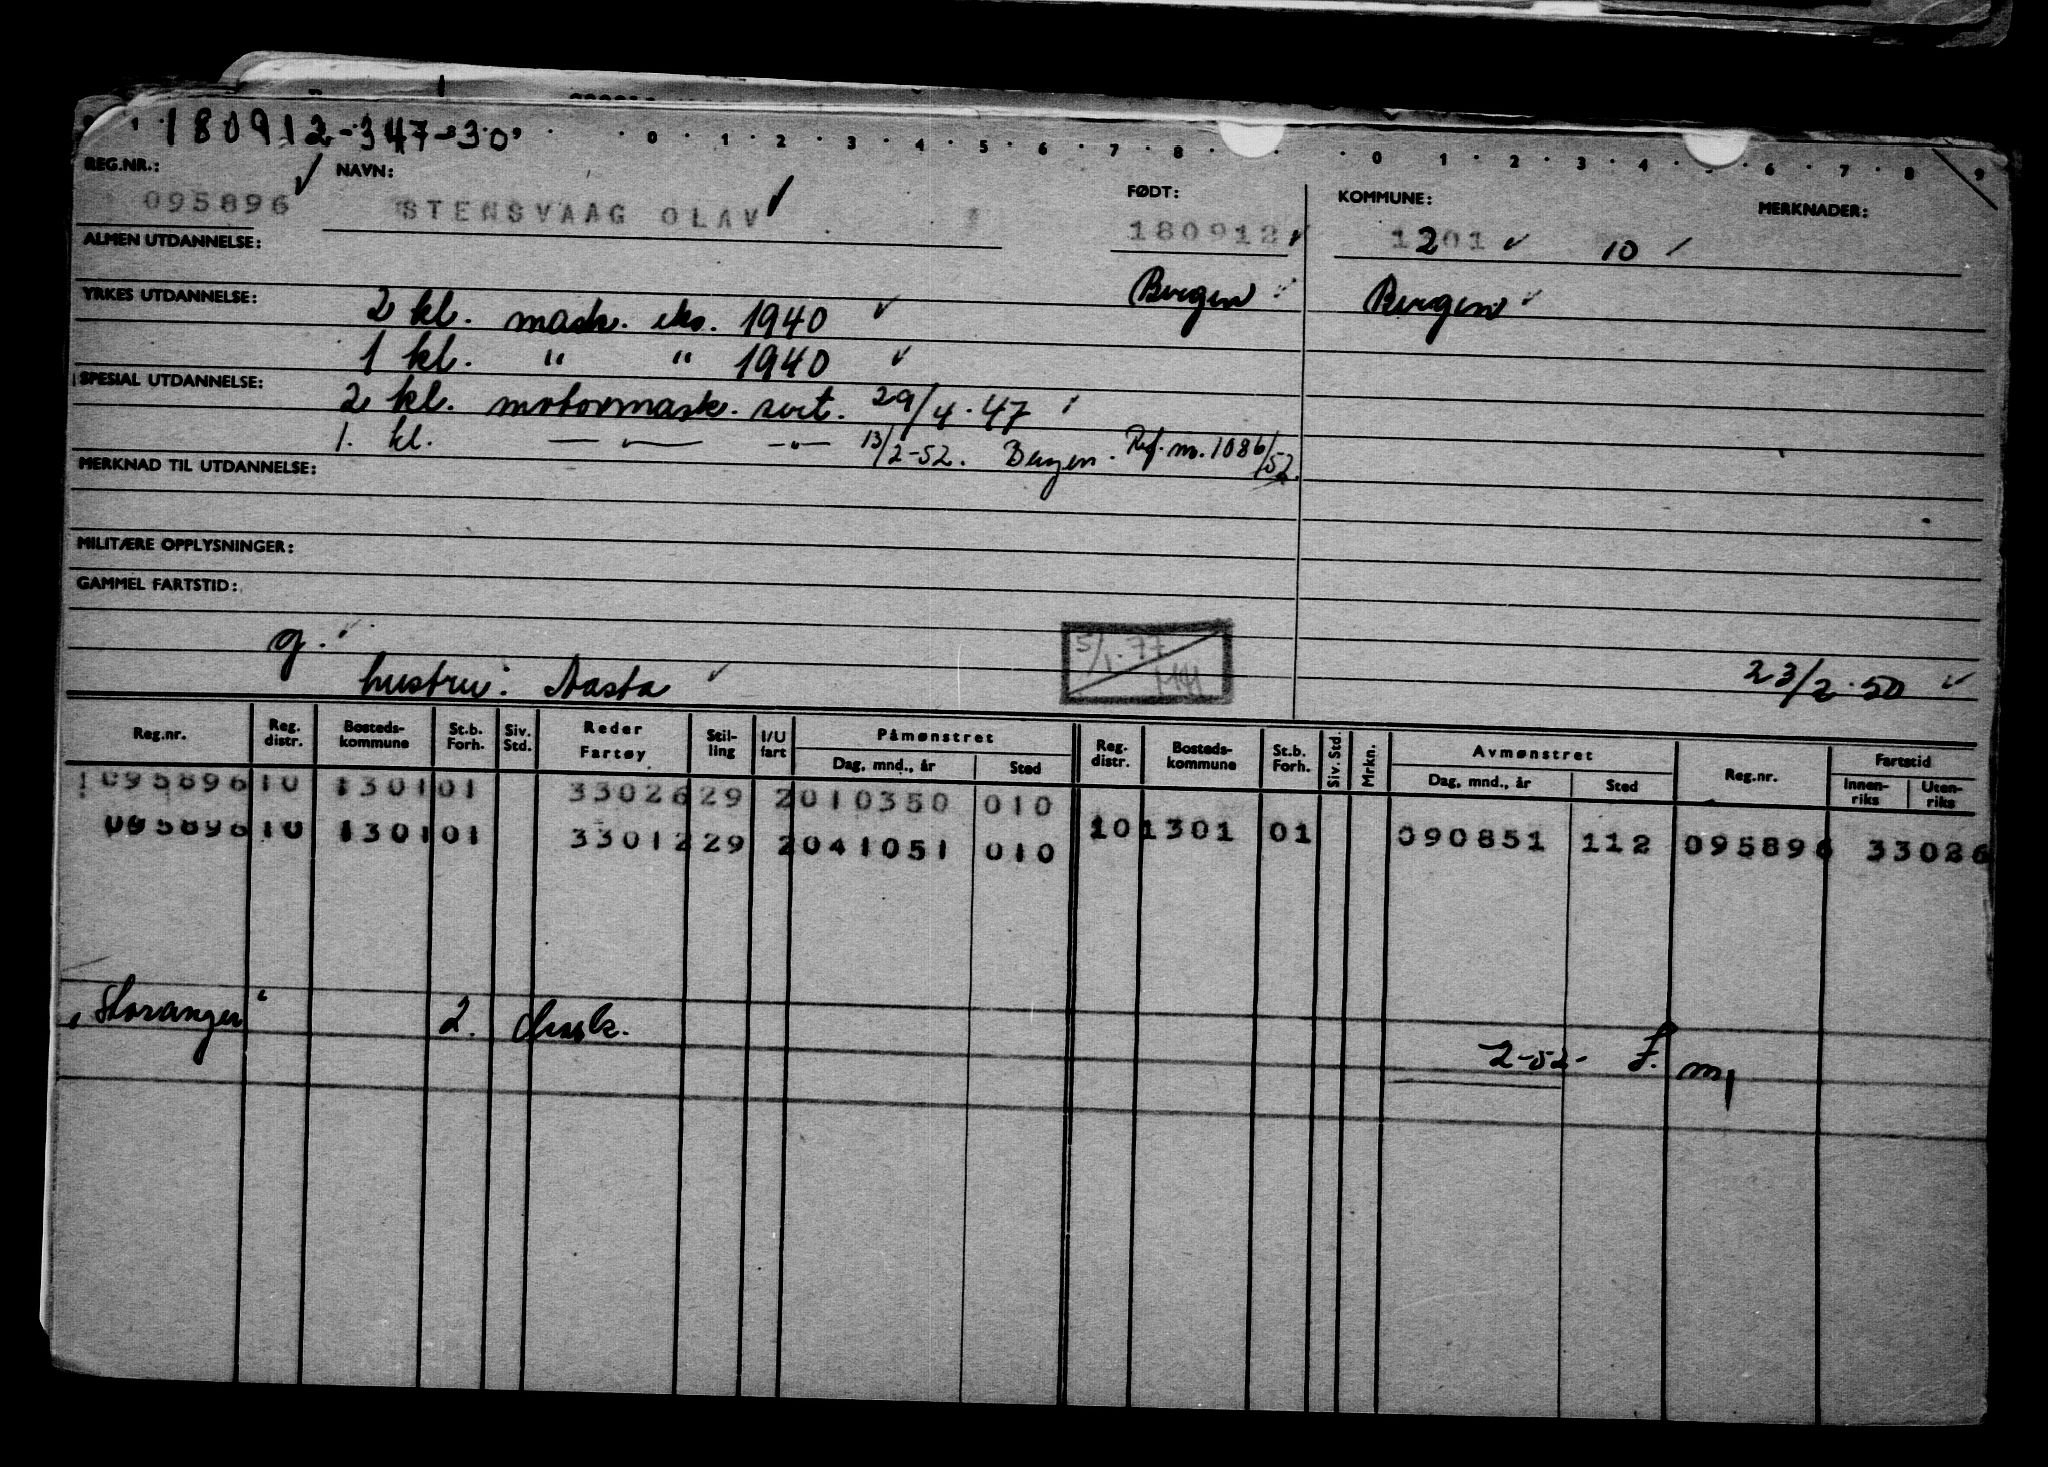 180912-347-30
0 1 2 3 4 5 6 7 8 0 1 2 3 4 6 7 8 9
REG.NR.: NAVN: FØDT: KOMMUNE: MERKNADER:
095896 STENSVAAG OLAV 180912 1201 10
ALMEN UTDANNELSE:
Bergen Bergen
YRKES UTDANNELSE: 2 kl. mask. eks. 1940
1 kl. " " 1940
SPESIAL UTDANNELSE: 2 kl. motormask. sert. 29/4.47
1. kl. — " — — " — 13/2-52. Bergen. Ref. nr. 1086/52.
MERKNAD TIL UTDANNELSE:
MILITÆRE OPPLYSNINGER:
GAMMEL FARTSTID:
g.
5/1.77
hustru: Aasta 23/2.50
Reg.nr. Reg. distr. Bosteds-kommune St.b. Forh. Siv. Std. Reder Fartøy Stil-ling I/U fart Påmønstret Dag, mnd., år Sted Reg. distr. Bosteds-kommune St.b. Forh. Siv. Std. Mrkn. Avmønstret Dag, mnd., år Sted Reg.nr. Fartstid Innen-riks Uten-riks
095896 10 1301 01 33026 29 2 010350 010
095896 10 1301 01 33012 29 2 041051 010 10 1301 01 090851 112 095896 33026
"Storanger" 2.
2-52-